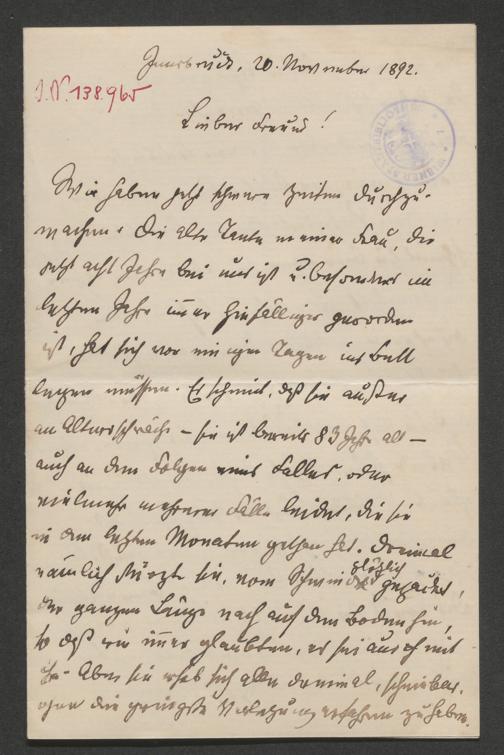 Innsbruck, 20. November 1892.
J.N. 138.965
Lieber Freund!
Wir haben jetzt schwere Zeiten durchzu-
machen. Die alte Tante meiner Frau, die
jetzt acht Jahre bei uns ist u. besonders im
letzten Jahre immer hinfälliger geworden
ist, hat sich vor einigen Tagen ins Bett
legen müssen. Es scheint, daß sie außer
an Altersschwäche – sie ist bereits 83 Jahre alt –
auch an den Folgen eines Falles, oder
vielmehr mehrerer Fälle leidet, die sie
in den letzten Monaten gethan hat. Dreimal
nämlich stürzte sie, vom Schwindel plötzlich gepackt,
der ganzen Länge nach auf den Boden hin,
so daß wir immer glaubten, es sei aus mit
ihr. Aber sie erhob sich alle dreimal, scheinbar
ohne die geringste Verletzung erfahren zu haben.